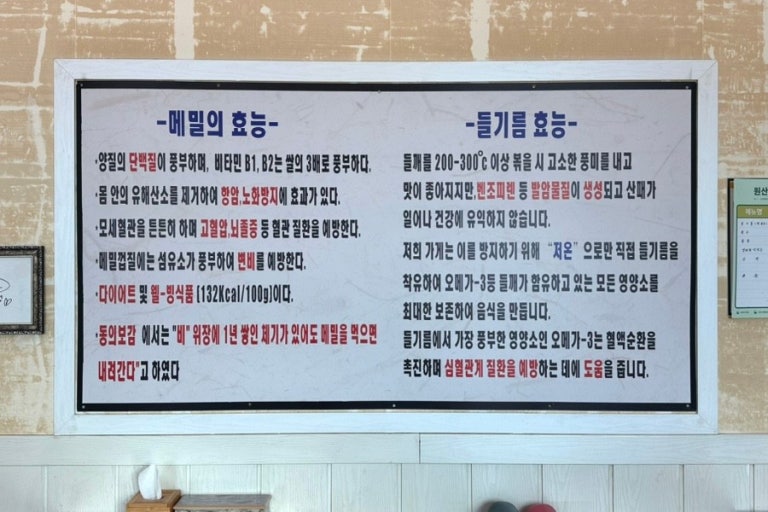 -메밀의 효능-
·양질의 단백질이 풍부하며, 비타민 B1, B2는 쌀의 3배로 풍부하다.
·몸 안의 유해산소를 제거하여 항암,노화방지에 효과가 있다.
·모세혈관을 튼튼히 하며 고혈압,뇌졸증 등 혈관 질환을 예방한다.
·메밀껍질에는 섬유소가 풍부하여 변비를 예방한다.
·다이어트 및 웰-빙식품 (132Kcal/100g)이다.
·동의보감 에서는 "비" 위장에 1년 쌓인 체기가 있어도 메밀을 먹으면
내려간다"고 하였다
-들기름 효능-
들깨를 200-300℃ 이상 볶을 시 고소한 풍미를 내고
맛이 좋아지지만,벤조피렌 등 발암물질이 생성되고 산패가
일어나 건강에 유익하지 않습니다.
저희 가게는 이를 방지하기 위해 "저온"으로만 직접 들기름을
착유하여 오메가-3등 들깨가 함유하고 있는 모든 영양소를
최대한 보존하여 음식을 만듭니다.
들기름에서 가장 풍부한 영양소인 오메가-3는 혈액순환을
촉진하며 심혈관계 질환을 예방하는 데에 도움을 줍니다.
원산
메뉴명